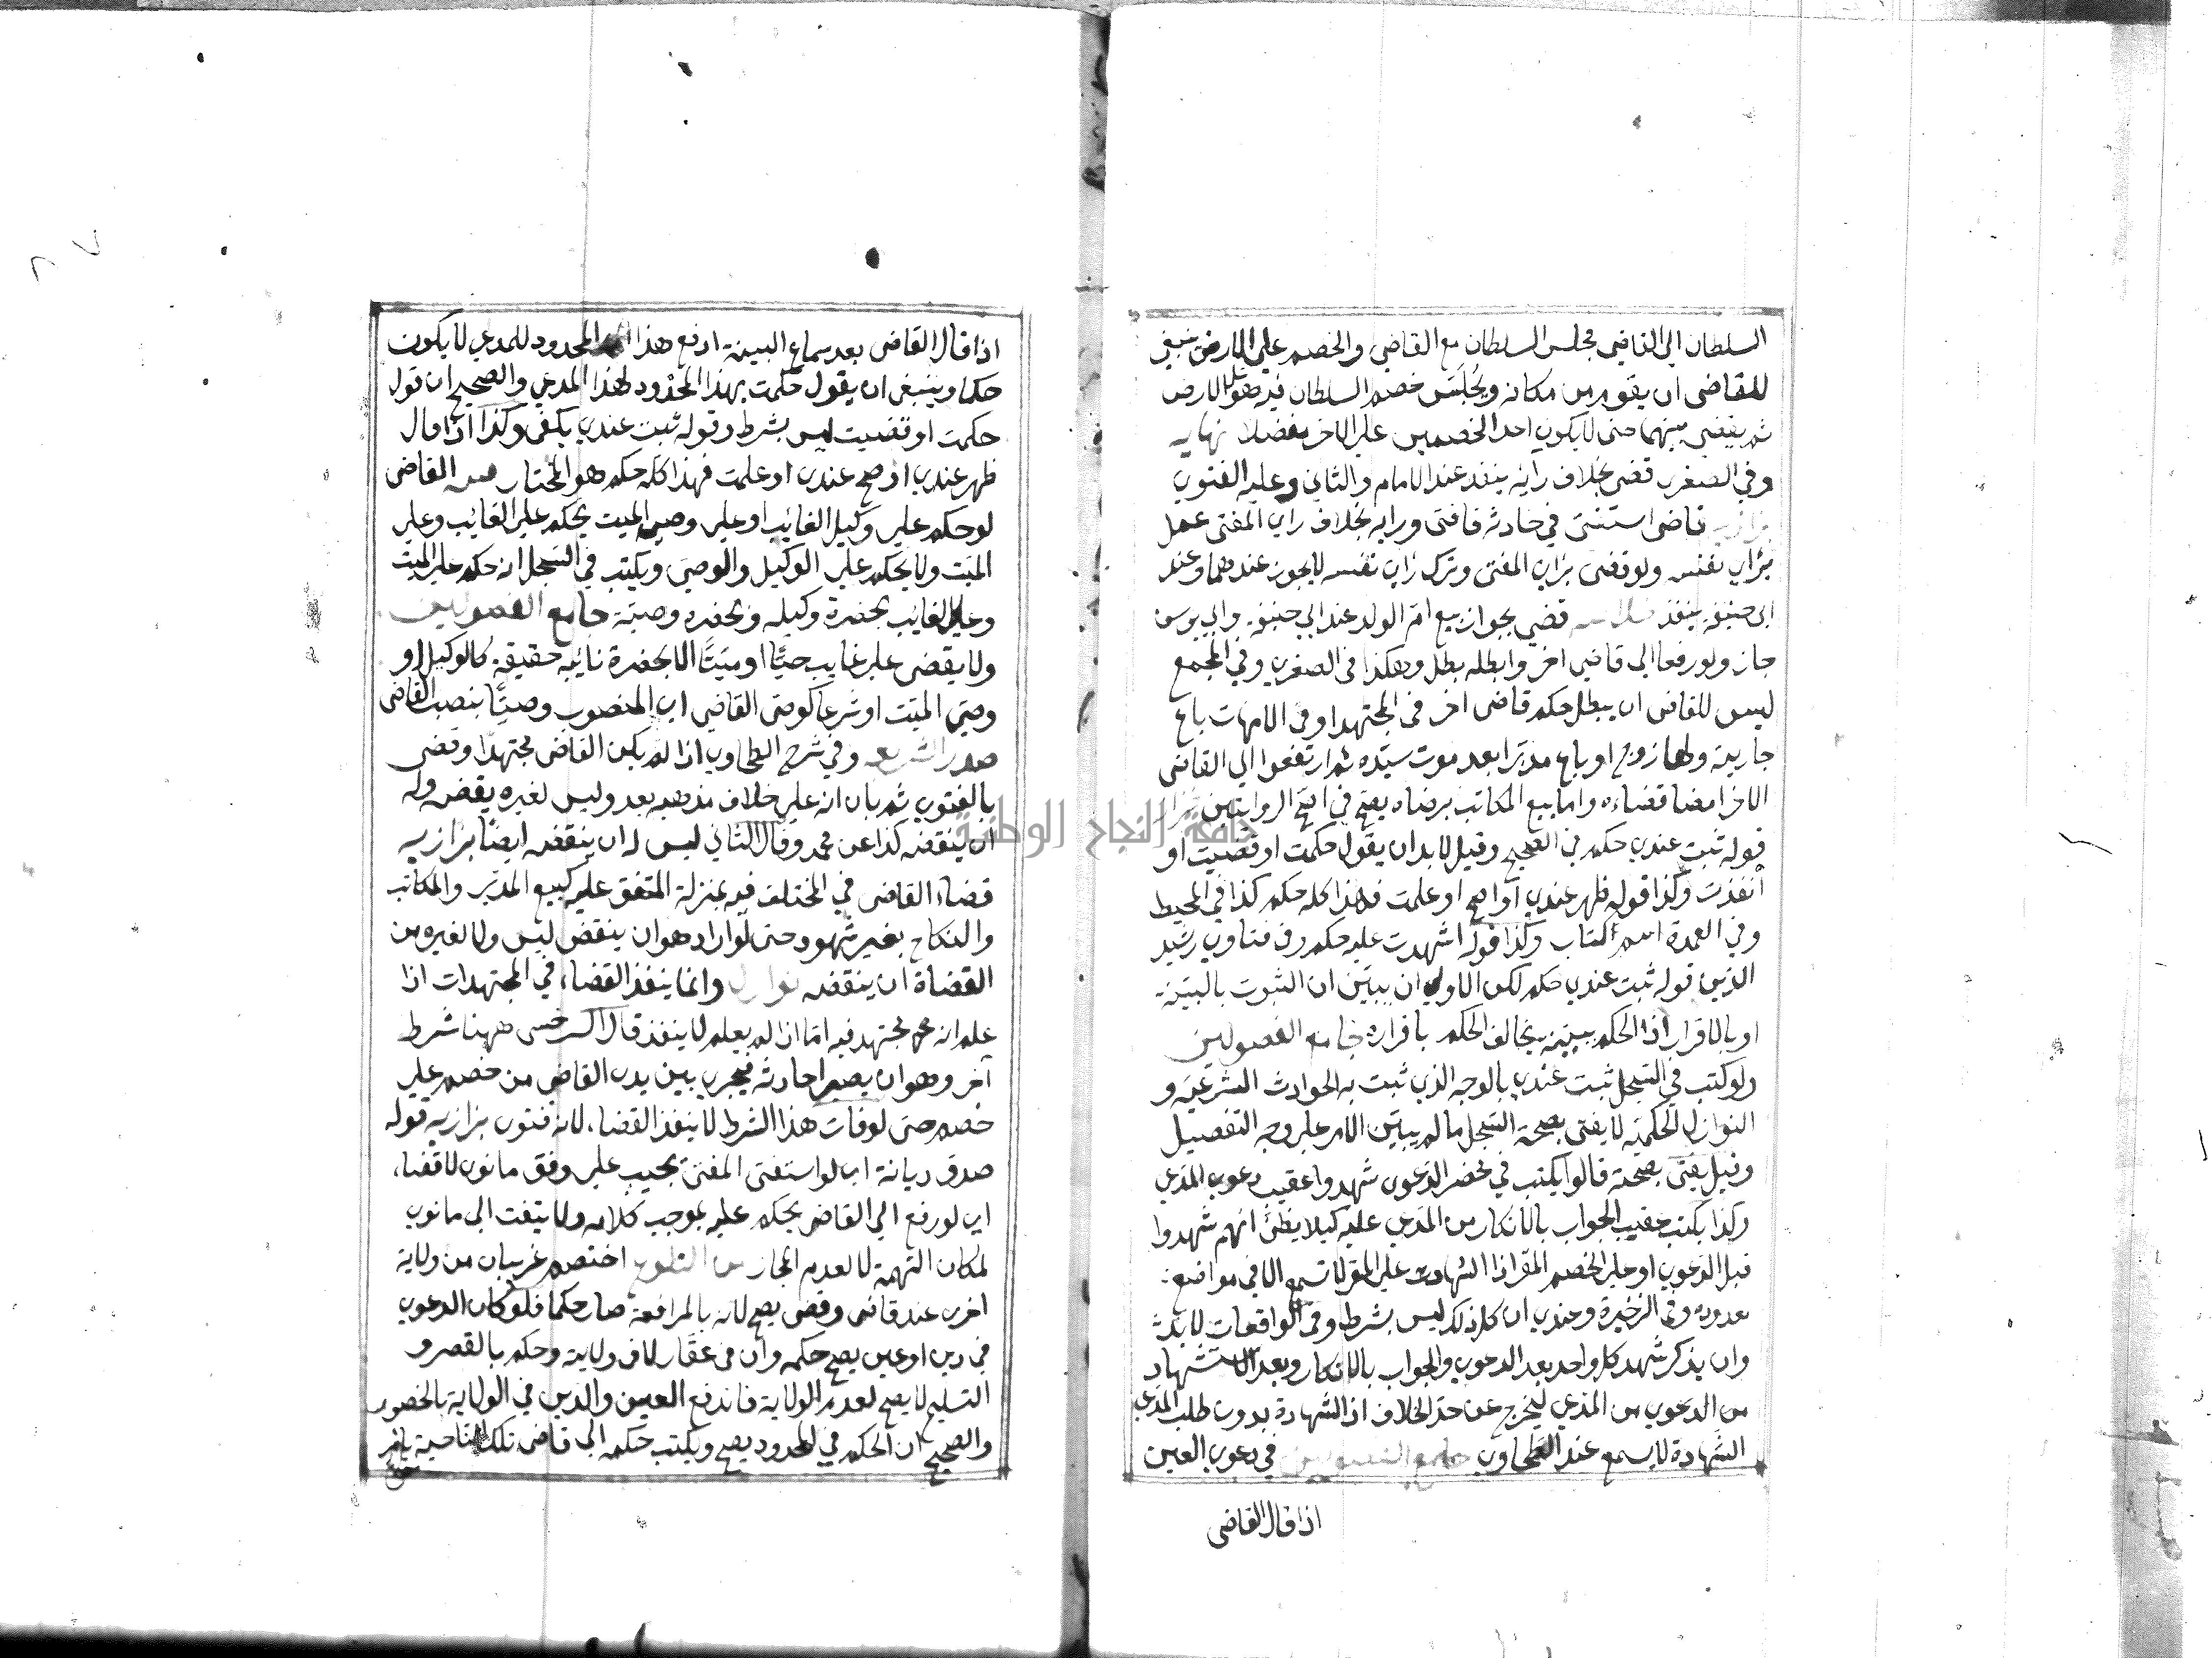 السلطان الي القاضي مجلس السلطان مع القاضي والخصم علي الارض ينبغي
للقاضي ان يقوم من مكانه ويجلس خصم السلطان فيه ويقعد علي الارض
ثم يقضي بينهما حتى لا يكون احد الخصمين علي الاخر مفضلا نهايه
وفي الصغرى قضى بخلاف رايه ينفذ عند الامام والثاني وعليه الفتوي
بزازيه قاضى استفتى في حادثه فافتى ورايه بخلاف راي المفتى عمل
براي نفسه ولو قضى براي المفتى وترك راي نفسه لا يجوز عندهما وعند
ابي حنيفه ينفذ قضي بجواز بيع ام الولد عند ابي حنيفه وابي يوسف
جاز ولو رفعا الى قاضي اخر وابطله بطل وهكذا في الصغري وفي المجمع
ليس للقاضى ان يبطل حكم قاضى اخر في المجتهد وفى الامهات باع
جارية ولها زوج او باع مدبرا بعد موت سيده ثم ارتفعوا الي القاضى
الاخر امضا قضاءه واما بيع المكاتب برضاه يصح في اصح الروايتين
قوله ثبت عندي حكم في الصحيح وقيل لا بد ان يقول حكمت او قضيت او
انفذت وكذا قوله ظهر عندي او صح او علمت فهذا كله حكم كذا في المحيط
وفي العمدة اسم الكتاب وكذا قوله اشهدت عليه حكم وفى فتاوي رشيد
الدين قوله ثبت عندي حكم لكن الاولي ان يبين ان الثبوت بالبينة
او بالاقرار اذ الحكم ببينه يخالف الحكم باقراره جامع الفصولين
ولو كتب في السجل ثبت عندي بالوجه الذي ثبت به الحوادث الشرعيه و
النوازل الحكميه لا يفتى بصحة السجل ما لم يبين الامر علي وجه التفصيل
وقيل يفتى بصحته قالوا يكتب في محضر الدعوى شهدوا عقيب دعوي المدعي
وكذا يكتب عقيب الجواب بالانكار من المدعي عليه كيلا يظن انهم شهدوا
قبل الدعوي او علي الخصم المقر اذا الشهادت علي المقر لا تسمع الا في مواضع
معدوده وفي الذخيرة وعندي ان كل ذلك ليس بشرط وفى الواقعات لا بد
وان يذكر شهد كل واحد بعد الدعوي والجواب بالانكار وبعد الاستشهاد
من الدعوي من المدعي ليخرج عن حد الخلاف اذ الشهادة بدون طلب المدعي
الشهادة لا يسمع عند الطحاوي جامع الفصولين في دعوى العين
اذا قال القاضى
اذا قال القاضى بعد سماع البينة ادفع هذا المحدود للمدعي لا يكون
حكما وينبغي ان يقول حكمت بهذا المحدود لهذا المدعي والصحيح ان قوله
حكمت او قضيت ليس بشرط وقوله ثبت عندي يكفي وكذا اذا قال
ظهر عندي او صح عندي او علمت فهذا كله حكم هو المختار القاضى
لو حكم علي وكيل الغائب او علي وصي الميت يحكم علي الغائب وعلي
الميت ولا يحكم علي الوكيل والوصي ويكتب في السجل انه حكم علي الميت
وعلي الغائب بحضرة وكيله وبحضره وصيه جامع الفصولين
ولا يقضى علي غايب حيًّا او ميتًا الا بحضرة نائبه حقيقة كالوكيل او
وصي الميت او شرعا كوصى القاضي اي المنصوب وصيًّا بنصب القاضى
صدر الشريعه وفي شرح الطحاوي اذا لم يكن القاضى مجتهدًا وقضى
بالفتوي ثم بان انه علي خلاف مذهبه بعد وليس لغيره نقضه وله
ان ينقضه كذا عن محمد وقال الثاني ليس له ان ينقضه ايضًا بزازيه
قضاء القاضى في المختلف فيه بمنزلة المتفق عليه كبيع المدبر والمكاتب
والنكاح بغير شهود حتى لو اراد هو ان ينقض ليس ولا لغيره من
القضاة ان ينقضه نوازل وانما ينفذ القضاء في المجتهدات اذا
علم انه مجتهد فيه اما اذا لم يعلم لا ينفذ قال السرخسى ههنا شرط
آخر وهو ان يصير حادثه فيجري بين يدي القاضى من خصم علي
خصم حتى لو فات هذا الشرط لا ينفذ القضاء لانه فتوى بزازيه قوله
صدق ديانة اي لو استفتى المفتى يجيب علي وفق ما نوى لا قضاء
اي لو رفع الي القاضى يحكم عليه بموجب كلامه ولا يلتفت الى ما نوي
لمكان التهمة لا لعدم المجاز من التلويح اختصم غريبان من ولاية
اخرى عند قاضى وقضى يصح لانه بالمرافعة صار حكما فلو كان الدعوي
في دين او عين يصح حكمه وان في عقار لا في ولايته وحكم بالقصر و
التسليم لا يصح لعدم الولاية فاندفع العين والدين في الولاية بالحضور
والصحيح ان الحكم في المحدود يصح ويكتب حكمه الى قاضى تلك الناحية
جامعة النجاح الوطنية